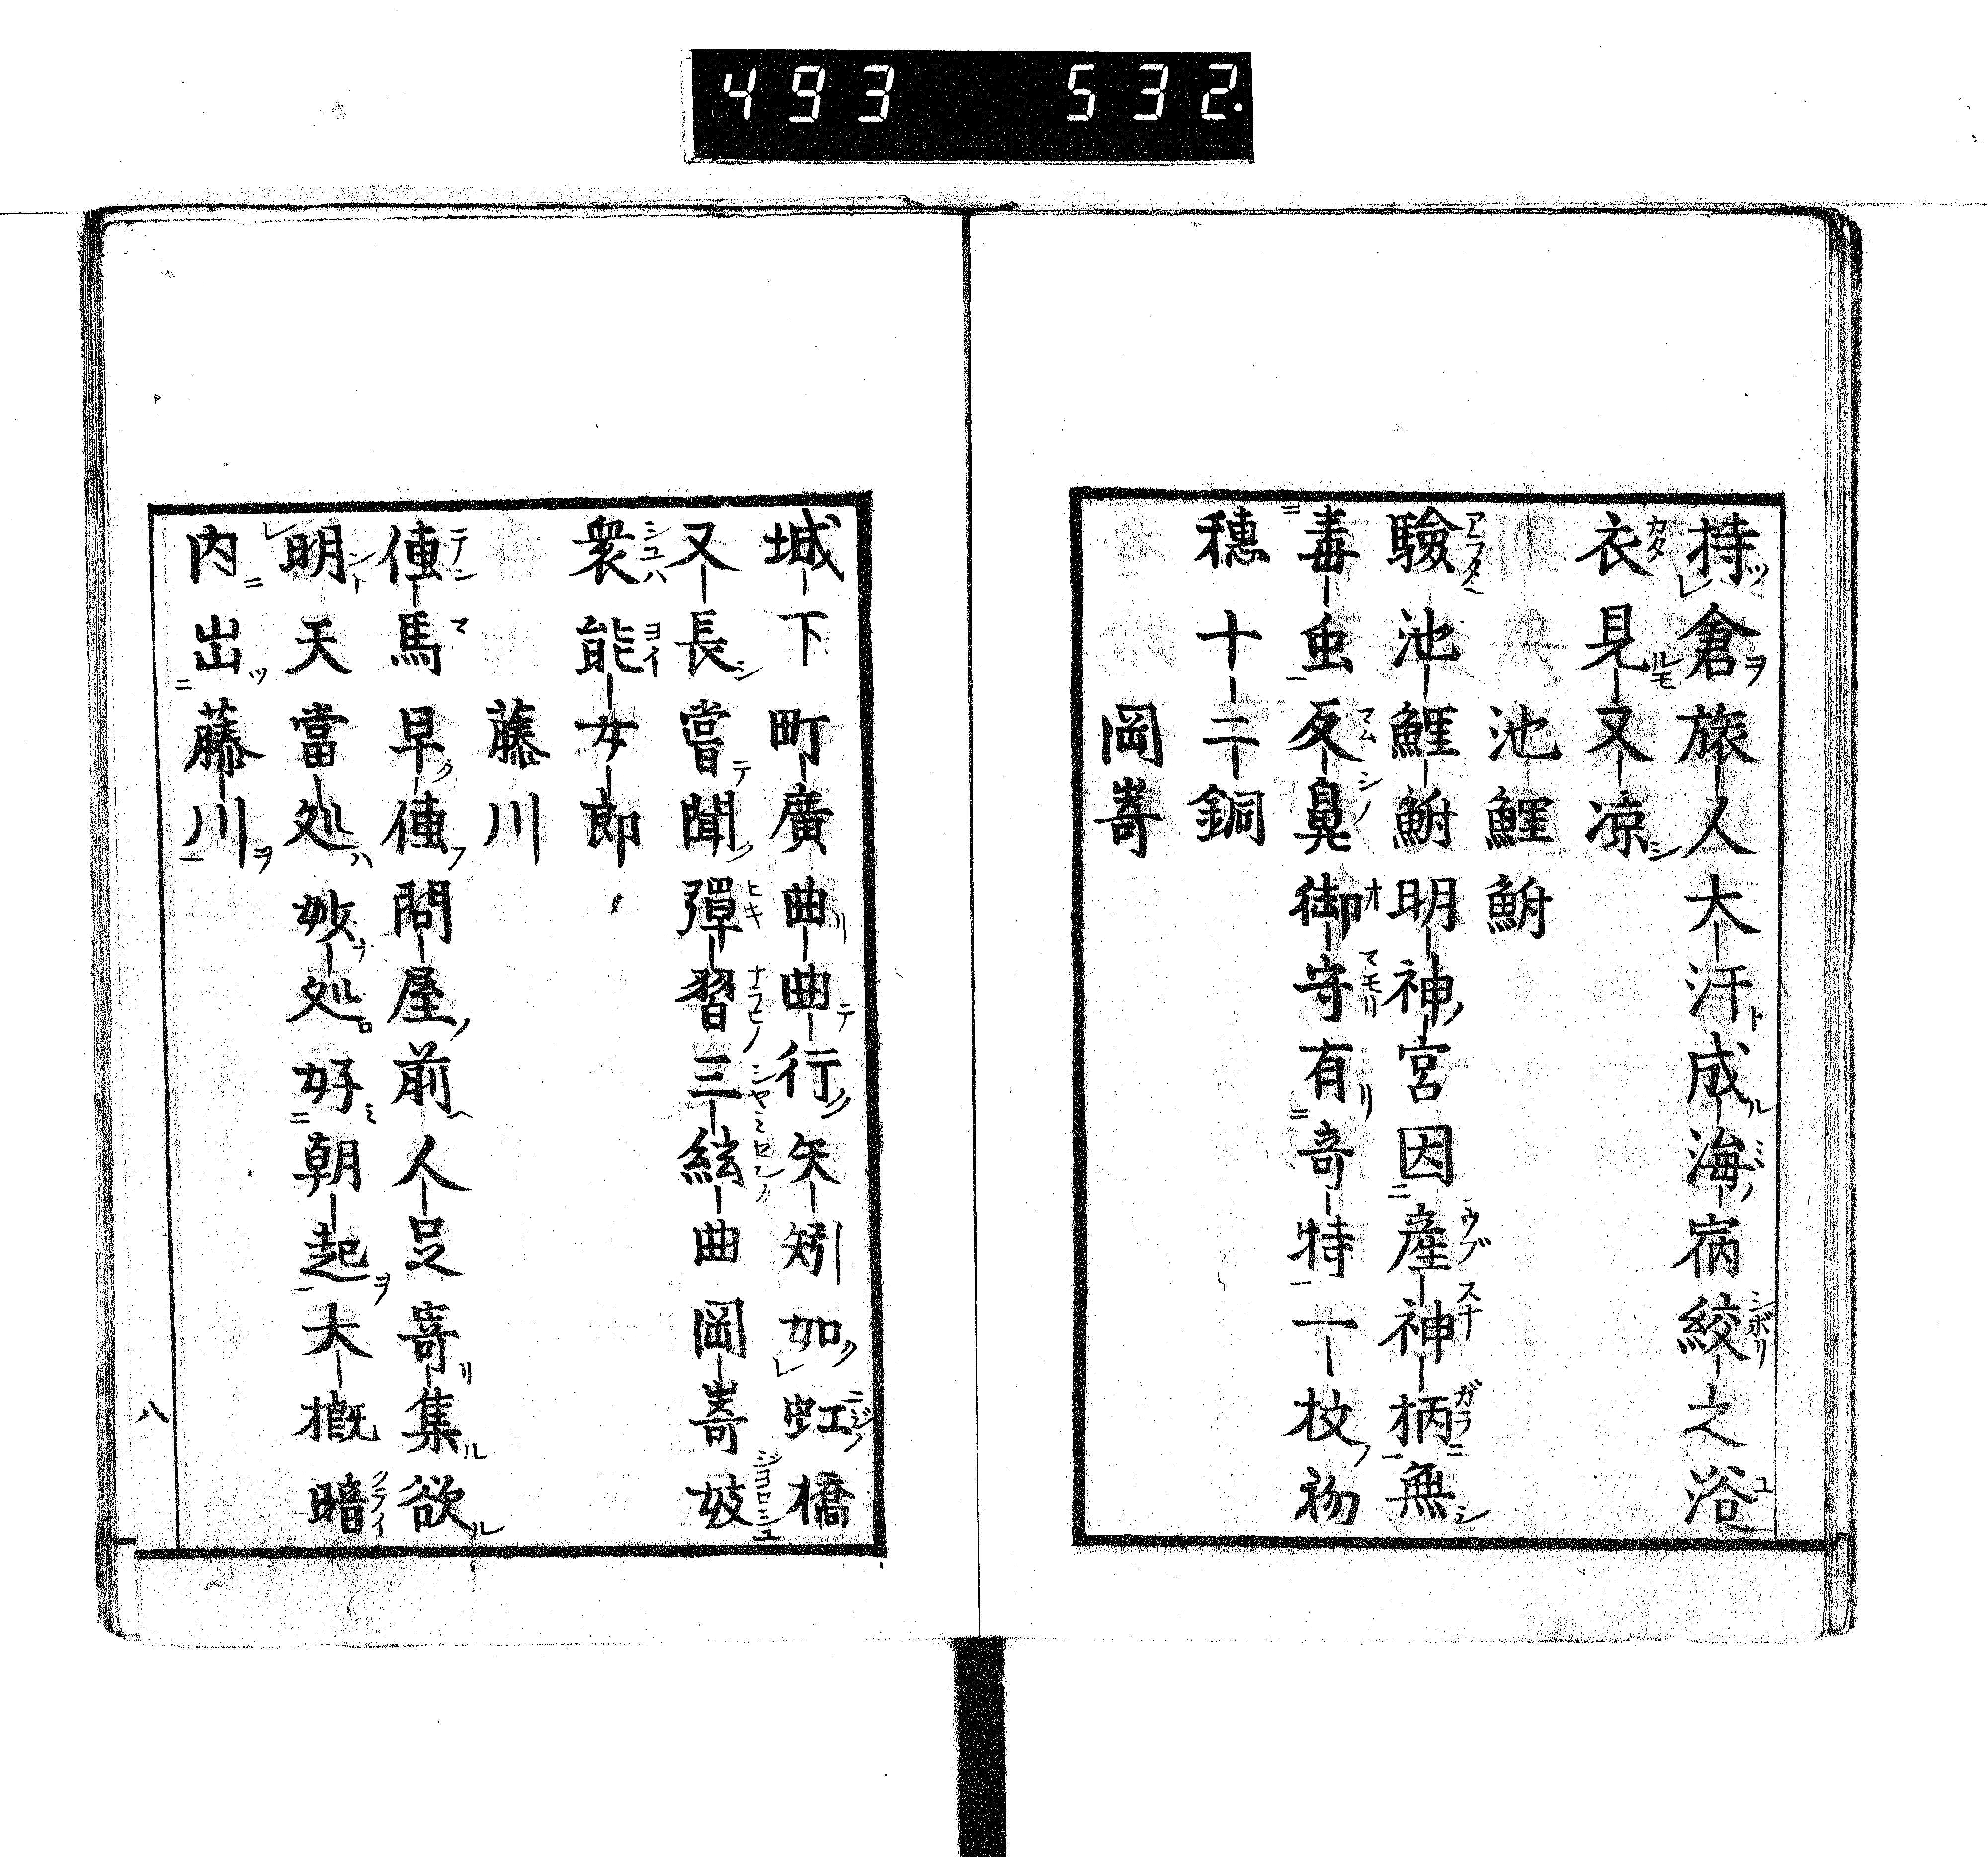 493 532.
持倉旅人大汗成海病絞之浴
衣見又凉
池鯉鮒
驗池鯉鮒明神宮因產神柄無
毒虫反鼻御守有竒特一枚初
穗十二銅
岡嵜
城下町廣曲曲行矢矧如虹橋
又長嘗聞彈習三絃曲岡嵜妓
衆能女郎
藤川
傳馬早傳問屋前人足寄集欲
明天當処妝処好朝起大概暗
内出藤川
八